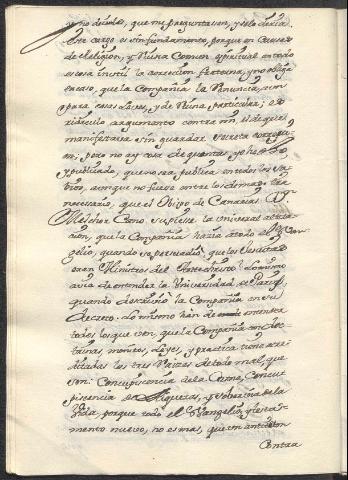 y no duíole, que me preguntasen, y yo lo decia.
Este cargo es sin fundamento, porque en causas
de Religion, y Ruina Comun espiritual en todo
es cosa inutil la correccion fraterna, y no obliga
en caso, que la Compañia la Renuncia, aun
para esas Leyes, y de Ruina particular; es
ridiculo argumento contra mi, el de que se
manifestaria sin guardar secreto
pero no ay cosa de quantas yo he
y publicado, que no sea publica en todos los
aunque no fuese entre los demas tan
necesario, que el Obispo de Canarias Dn.
Melchor Cano supiese la universal
cion, que la Compañia hacia a todo el Evan-
gelio, quando se persuadió, que los Jesuitas
eran Ministros del Antechristo. Lo mismo
avia de entender la Universidad de Paris,
quando describió la Compañia en su
Decreto. Lo mismo han de entender
todos los que vean, que la Compañia en doc-
trinas, montes, Leyes, y practica tiene acre-
ditadas las tres Raizes de todo mal, que
son: Concupiscencia de la Carne, Concu-
piscencia de Riquezas, y soberbia de la
Vida, porque todo el Evangelio, y testa-
mento nuevo, no es mas, que un antidoto
Contra